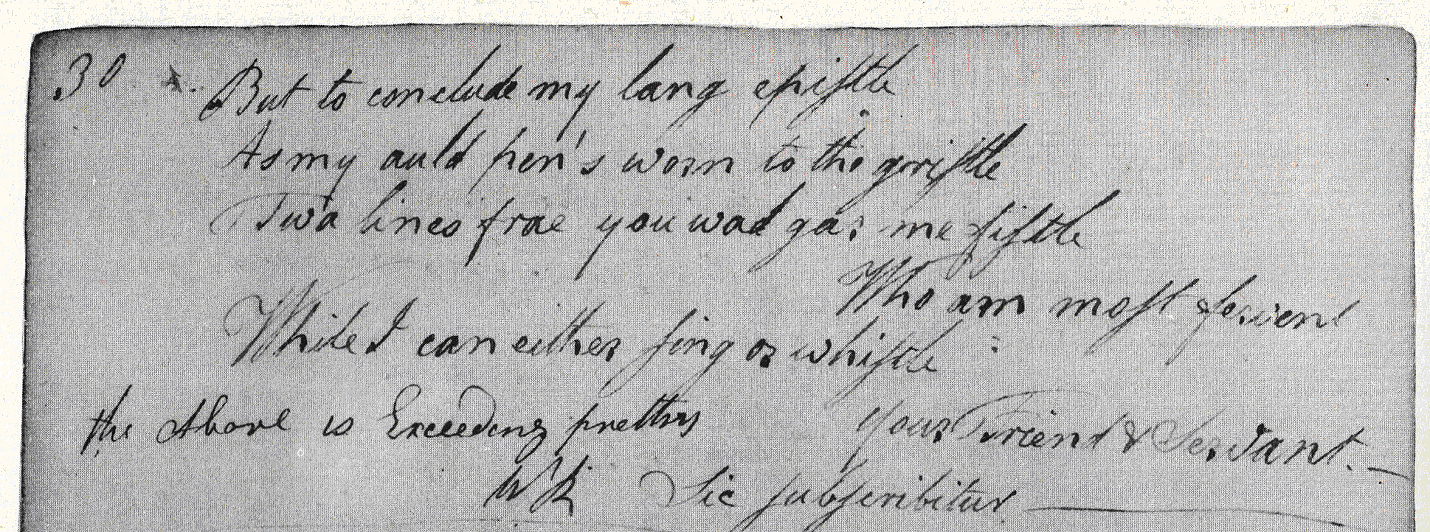 30
But to conclude my lang epistle
As my auld pen's worn to the gristle
Twa lines frae you wad gar me fistle
Who am most fervent
While I can either sing or whistle
Your Friend & Servant. —
the Above is Exceeding pretty
WR Sic subscribitur